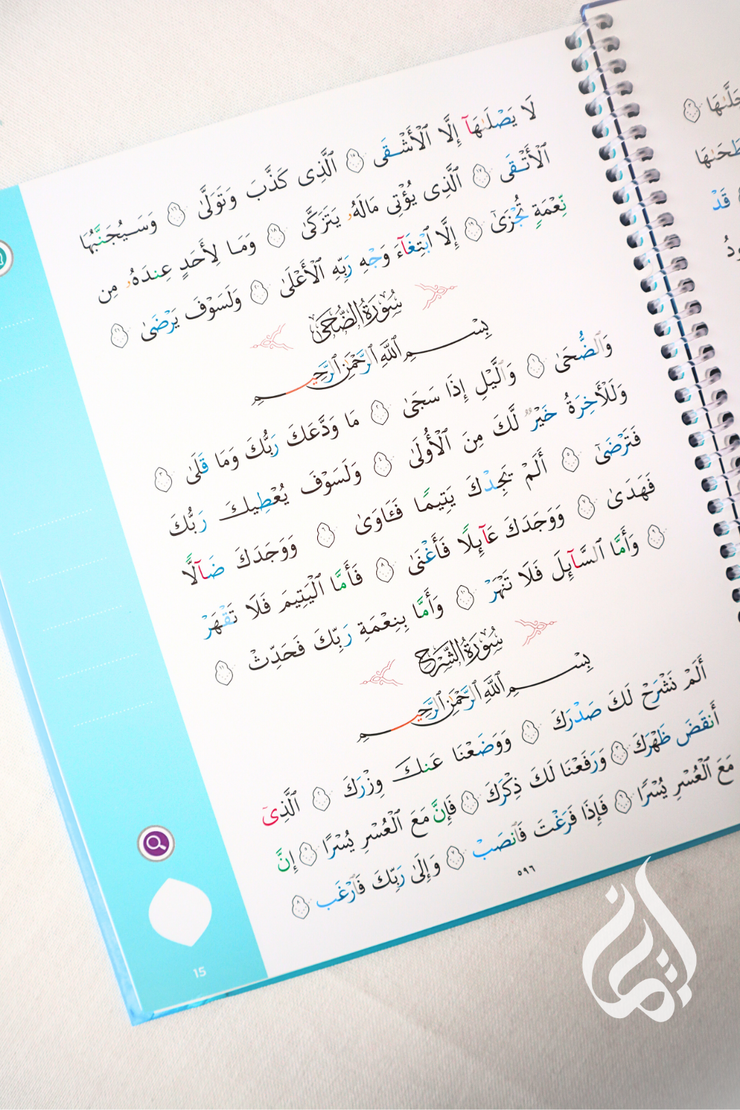 لَا يَصْلَىٰهَآ إِلَّا ٱلْأَشْقَى ٱلَّذِى كَذَّبَ وَتَوَلَّىٰ وَسَيُجَنَّبُهَا
ٱلْأَتْقَى ٱلَّذِى يُؤْتِى مَالَهُۥ يَتَزَكَّىٰ وَمَا لِأَحَدٍ عِندَهُۥ مِن
نِّعْمَةٍ تُجْزَىٰٓ إِلَّا ٱبْتِغَآءَ وَجْهِ رَبِّهِ ٱلْأَعْلَىٰ وَلَسَوْفَ يَرْضَىٰ
سُورَةُ الضُّحَىٰ
بِسْمِ ٱللَّهِ ٱلرَّحْمَٰنِ ٱلرَّحِيمِ
وَٱلضُّحَىٰ وَٱلَّيْلِ إِذَا سَجَىٰ مَا وَدَّعَكَ رَبُّكَ وَمَا قَلَىٰ
وَلَلْأَخِرَةُ خَيْرٌ لَّكَ مِنَ ٱلْأُولَىٰ وَلَسَوْفَ يُعْطِيكَ رَبُّكَ
فَتَرْضَىٰٓ أَلَمْ يَجِدْكَ يَتِيمًا فَـَٔاوَىٰ وَوَجَدَكَ ضَآلًّا
فَهَدَىٰ وَوَجَدَكَ عَآئِلًا فَأَغْنَىٰ فَأَمَّا ٱلْيَتِيمَ فَلَا تَقْهَرْ
وَأَمَّا ٱلسَّآئِلَ فَلَا تَنْهَرْ وَأَمَّا بِنِعْمَةِ رَبِّكَ فَحَدِّثْ
سُورَةُ الشَّرْحِ
بِسْمِ ٱللَّهِ ٱلرَّحْمَٰنِ ٱلرَّحِيمِ
أَلَمْ نَشْرَحْ لَكَ صَدْرَكَ وَوَضَعْنَا عَنكَ وِزْرَكَ ٱلَّذِىٓ
أَنقَضَ ظَهْرَكَ وَرَفَعْنَا لَكَ ذِكْرَكَ فَإِنَّ مَعَ ٱلْعُسْرِ يُسْرًا إِنَّ
مَعَ ٱلْعُسْرِ يُسْرًا فَإِذَا فَرَغْتَ فَٱنصَبْ وَإِلَىٰ رَبِّكَ فَٱرْغَب
٥٩٦
15
طَحَىٰهَا
قَدْ
إيمان